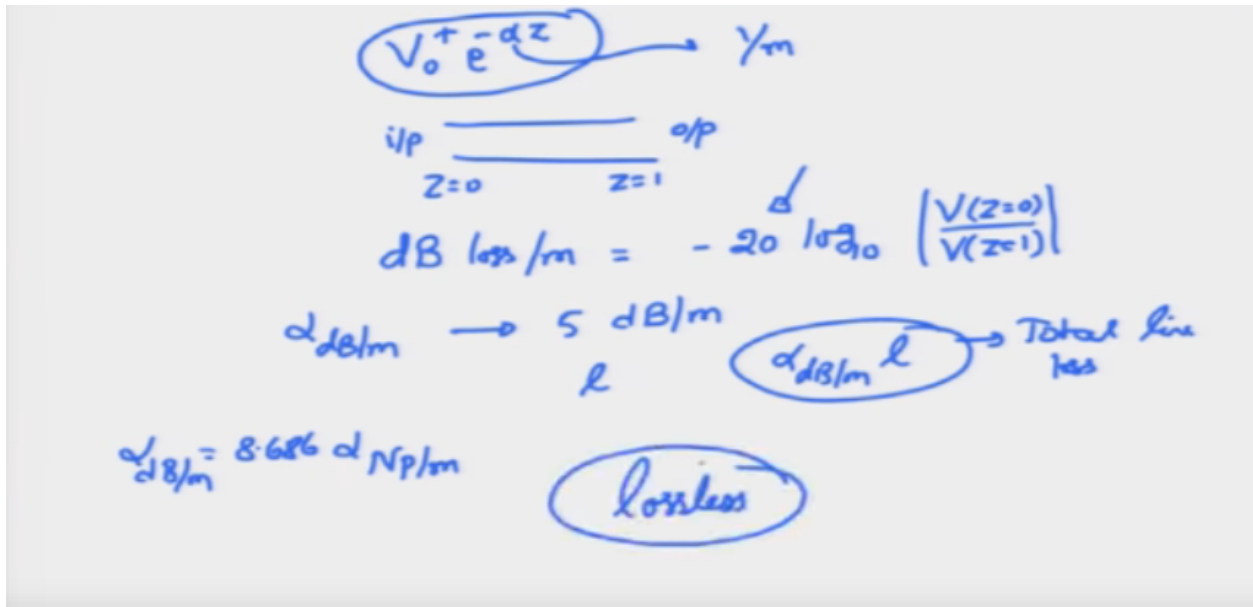 V₀⁺ e^{-αz} → 1/m
i/p o/p
z=0 z=1
dB loss/m = - 20 log₁₀ |V(z=0)/V(z=1)|
α_{dB/m} → 5 dB/m
l α_{dB/m} l → Total line loss
α_{dB/m} = 8.686 α Np/m
lossless